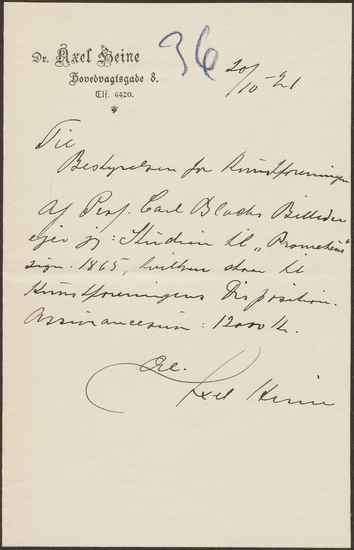 Dr. Axel Heine
Hovedvagtsgade 8.
Tlf. 6420.
36
20/10-21
Til
Bestyrelsen for Kunstforeningen
Af Prof. Carl Blochs Billeder
ejer jeg: Studien til "Prometheus"
sign: 1865, hvilken staar til
Kunstforeningens Disposition.
Assurancesum: 12000 Kr.
Axel Heine